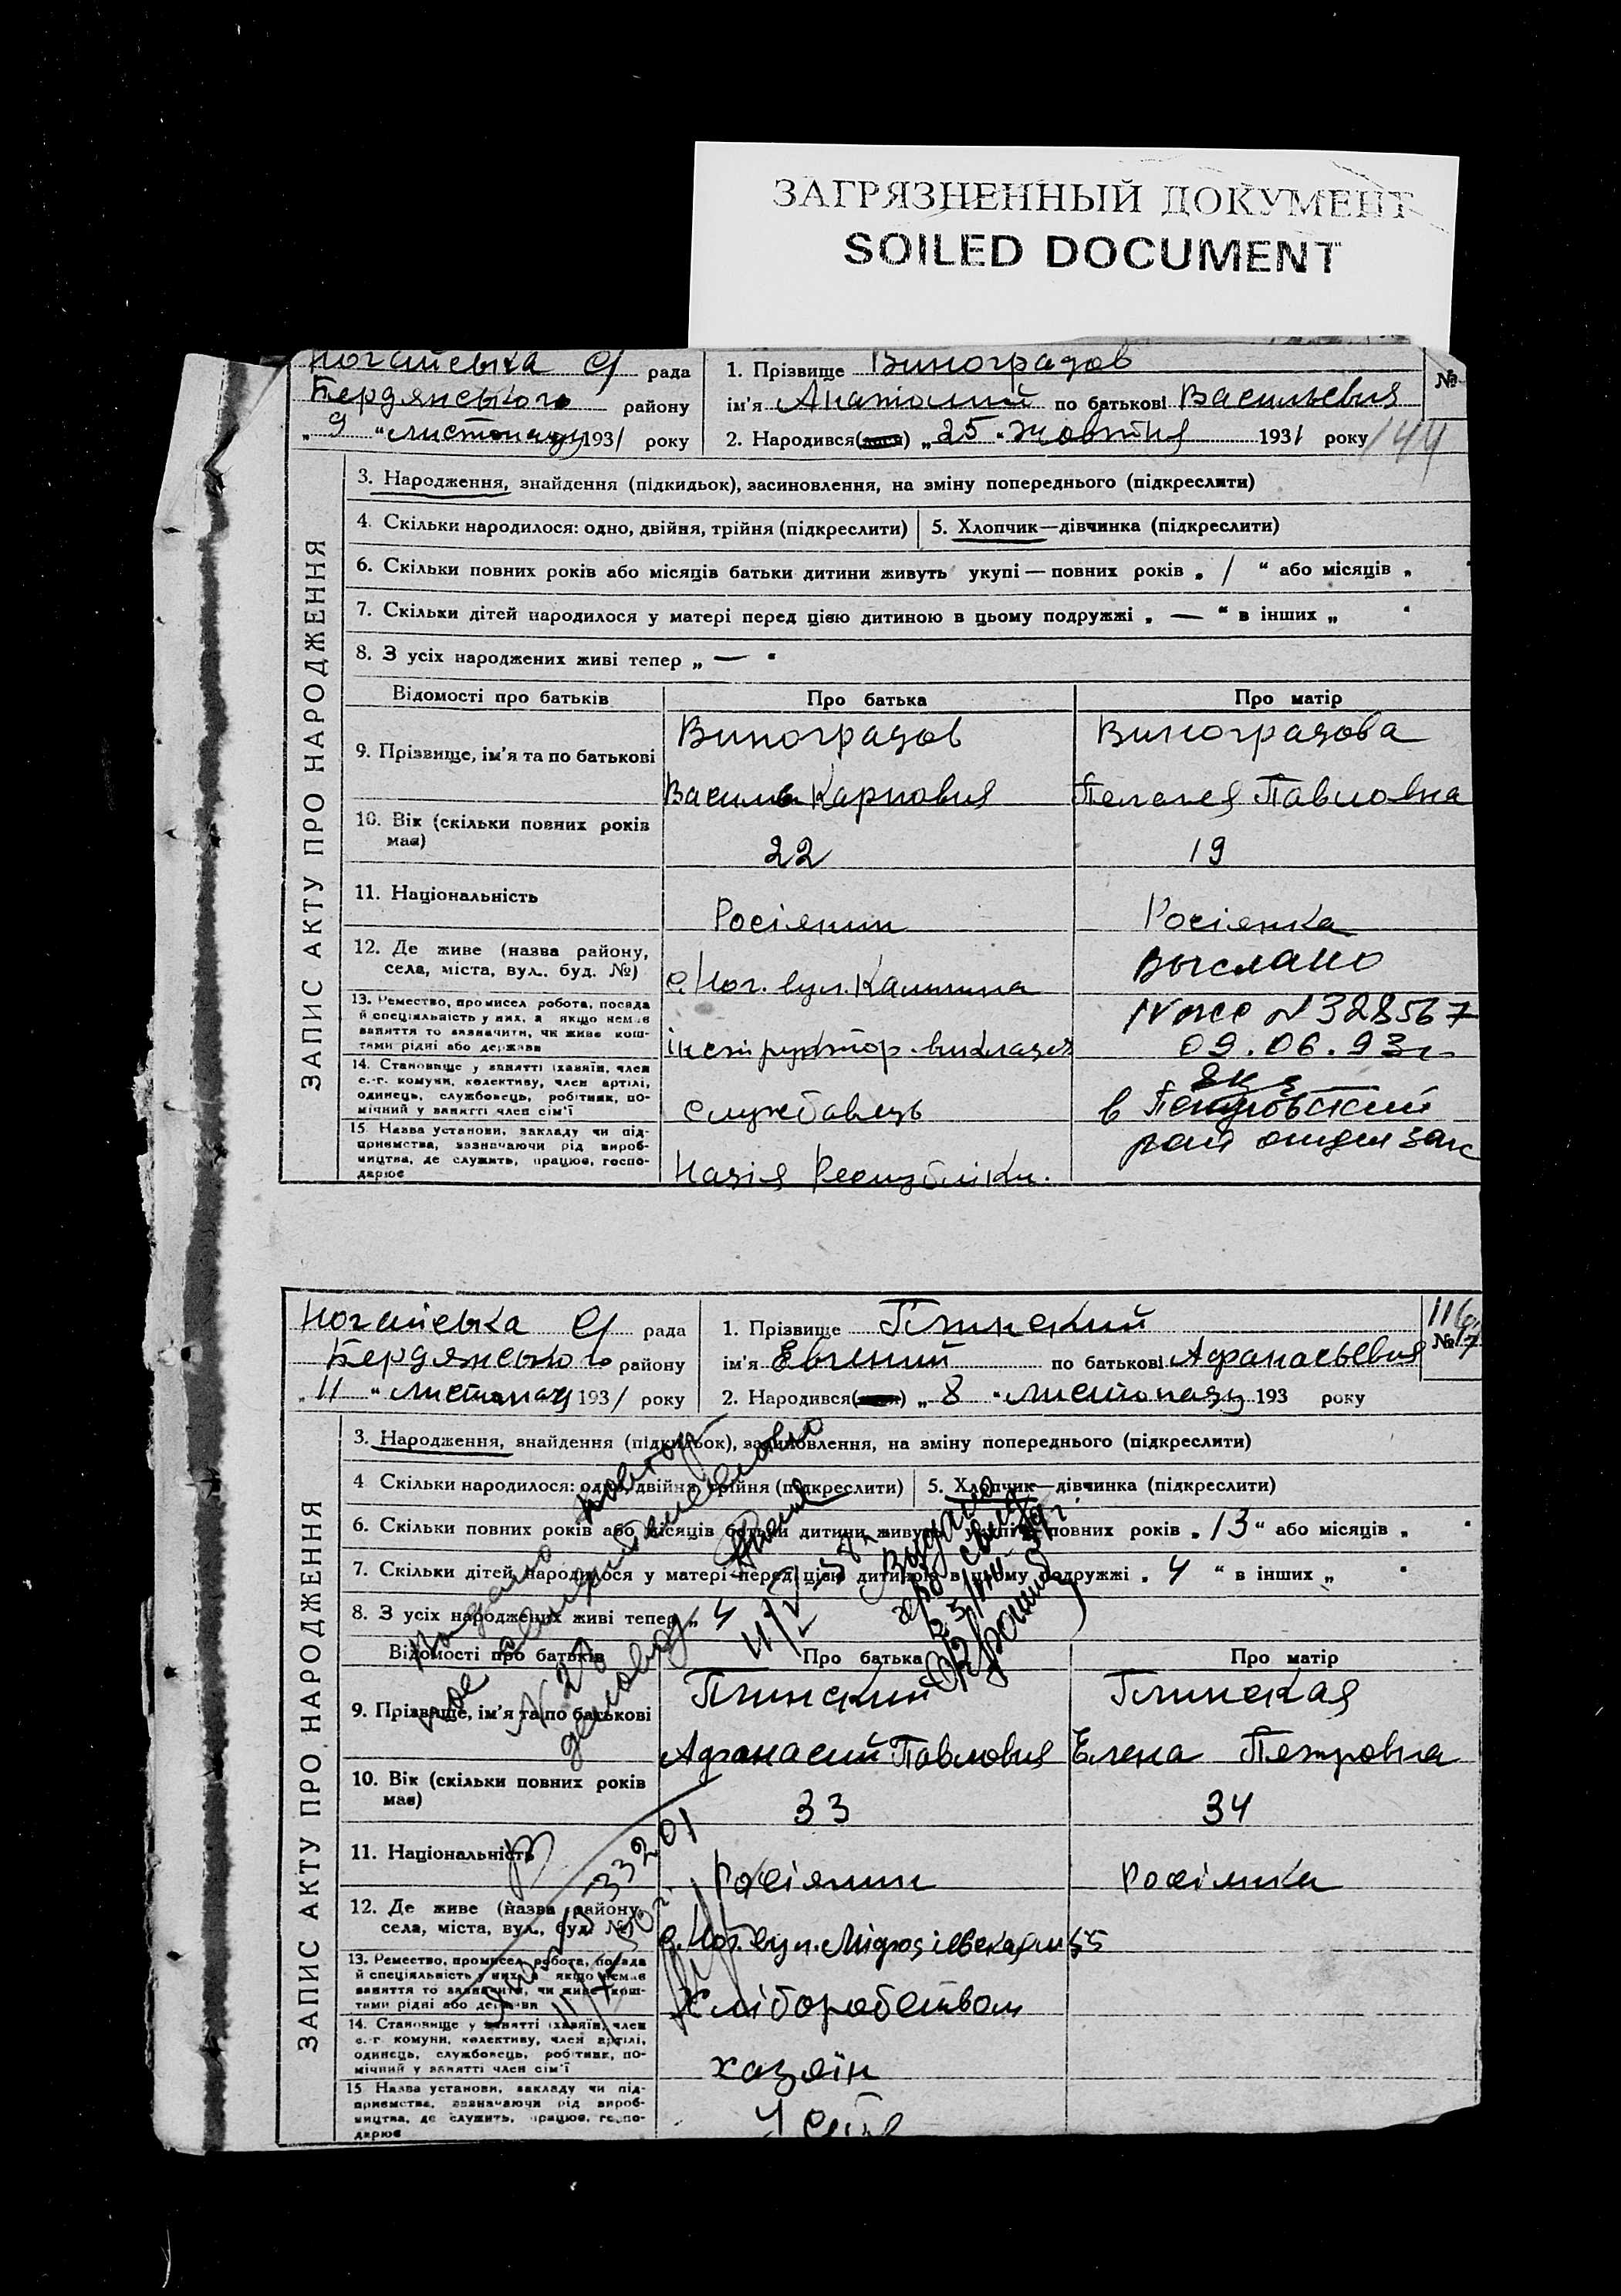 ЗАГРЯЗНЕННЫЙ ДОКУМЕНТ
SOILED DOCUMENT
Ногайська рада
Бердянського району
„ 9 “ листопаду 1931 року
1. Прізвище Виноградов
ім'я Анатолий по батькові Васильевич
2. Народився „ 25 “ жовтня 1931 року
№
144
ЗАПИС АКТУ ПРО НАРОДЖЕННЯ
3. Народження, знайдення (підкидьок), засиновлення, на зміну попереднього (підкреслити)
4. Скільки народилося: одно, двійня, трійня (підкреслити) 5. Хлопчик—дівчинка (підкреслити)
6. Скільки повних років або місяців батьки дитини живуть укупі — повних років „ 1 “ або місяців „ “
7. Скільки дітей народилося у матері перед цією дитиною в цьому подружжі „ — “ в інших „ “
8. З усіх народжених живі тепер „ — “
Відомості про батьків Про батька Про матір
9. Прізвище, ім'я та по батькові
Виноградов Виноградова
Василь Карпович Пелагея Павловна
10. Вік (скільки повних років має)
22 19
11. Національність
Росіянин Росіянка
12. Де живе (назва району, села, міста, вул., буд. №)
с. Ног. вул. Калинина
Выслано
13. Ремество, промисел робота, посада й спеціяльність у них, а якщо немає заняття то зазначити, чи живе коштами рідні або держави
інструктор
№ 328567
09.06.93г
14. Становище у занятті (хазяїн, член с.-г. комуни, колективу, член артілі, одинець, службовець, робітник, помічний у занятті член сім'ї
службовець
в Петровский
15. Назва установи, закладу чи підприємства, зазначаючи рід виробництва, де служить, працює, господарює
Республіки.
Ногайська рада
Бердянського району
„ 11 “ листопаду 1931 року
1. Прізвище Глинский
ім'я Евгений по батькові Афанасьевич
2. Народився „ 8 “ листопаду 193 року
№
ЗАПИС АКТУ ПРО НАРОДЖЕННЯ
3. Народження, знайдення (підкидьок), засиновлення, на зміну попереднього (підкреслити)
4 Скільки народилося: одно, двійня, трійня (підкреслити) 5. Хлопчик—дівчинка (підкреслити)
6. Скільки повних років або місяців батьки дитини живуть укупі — повних років „ 13 “ або місяців „ “
7. Скільки дітей народилося у матері перед цією дитиною в цьому подружжі „ 4 “ в інших „ “
8. З усіх народжених живі тепер „ 4
Відомості про батьків Про батька Про матір
9. Прізвище, ім'я та по батькові
Глинский Глинская
Афанасий Павлович Елена Петровна
10. Вік (скільки повних років має)
33 34
11. Національність
Росіянин Росіянка
12. Де живе (назва району, села, міста, вул., буд. №)
с. Ног. вул.
13. Ремество, промисел робота, посада й спеціяльність у них, а якщо немає заняття то зазначити, чи живе коштами рідні або держави
Хліборобством
14. Становище у занятті (хазяїн, член с.-г. комуни, колективу, член артілі, одинець, службовець, робітник, помічний у занятті член сім'ї
хазяїн
15 Назва установи, закладу чи підприємства, зазначаючи рід виробництва, де служить, працює, господарює